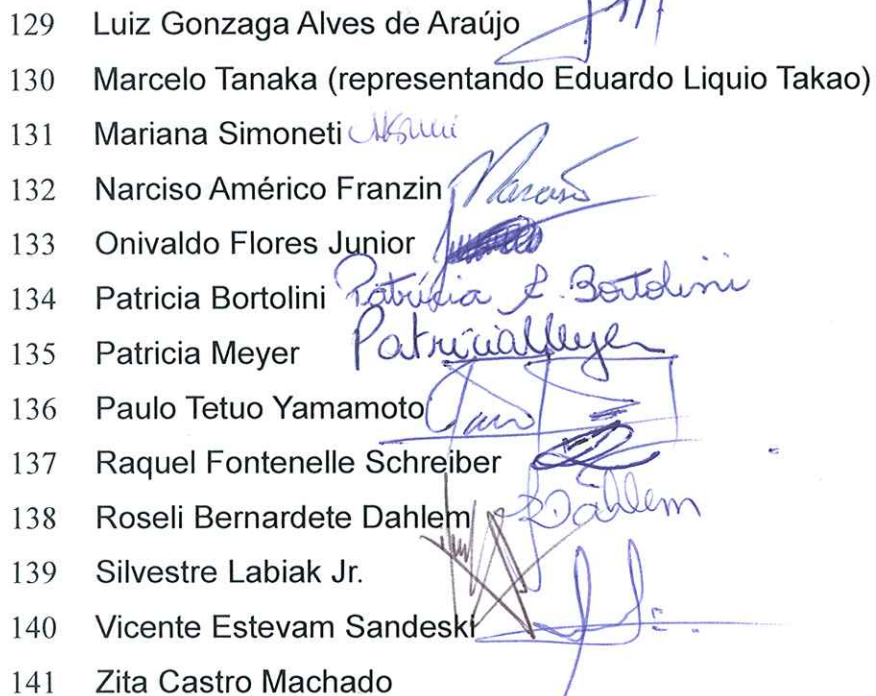 129 Luiz Gonzaga Alves de Araújo
130 Marcelo Tanaka (representando Eduardo Liquio Takao)
131 Mariana Simoneti
132 Narciso Américo Franzin Narciso
133 Onivaldo Flores Junior
134 Patricia Bortolini Patrícia A. Bortolini
135 Patricia Meyer Patricia Meyer
136 Paulo Tetuo Yamamoto
137 Raquel Fontenelle Schreiber
138 Roseli Bernardete Dahlem RDahlem
139 Silvestre Labiak Jr.
140 Vicente Estevam Sandeski
141 Zita Castro Machado